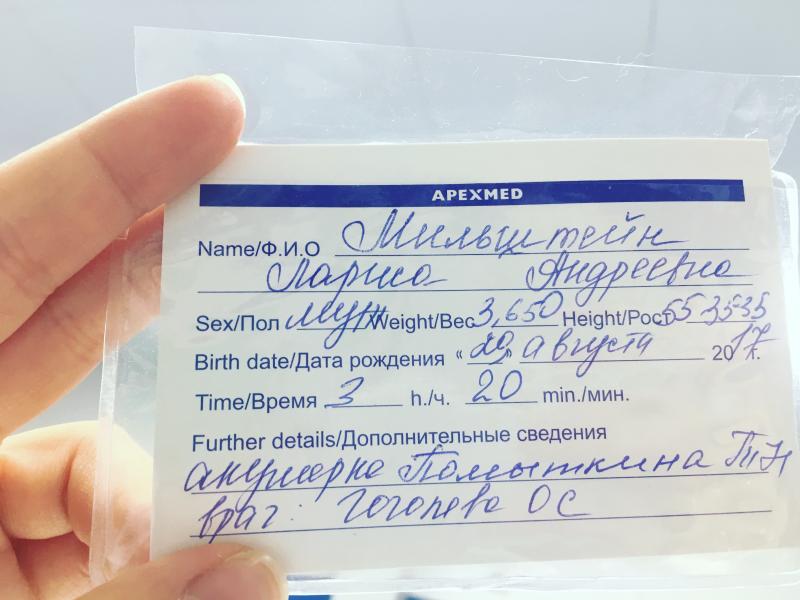 APEXMED
Name/Ф.И.О Мильштейн
Лариса Андреевна
Sex/Пол муж Weight/Вес 3,650 Height/Рост 55 35-35
Birth date/Дата рождения « 29 » августа 2017 г.
Time/Время 3 h./ч. 20 min./мин.
Further details/Дополнительные сведения
акушерка Помыткина ТН
врач: Гоголева ОС